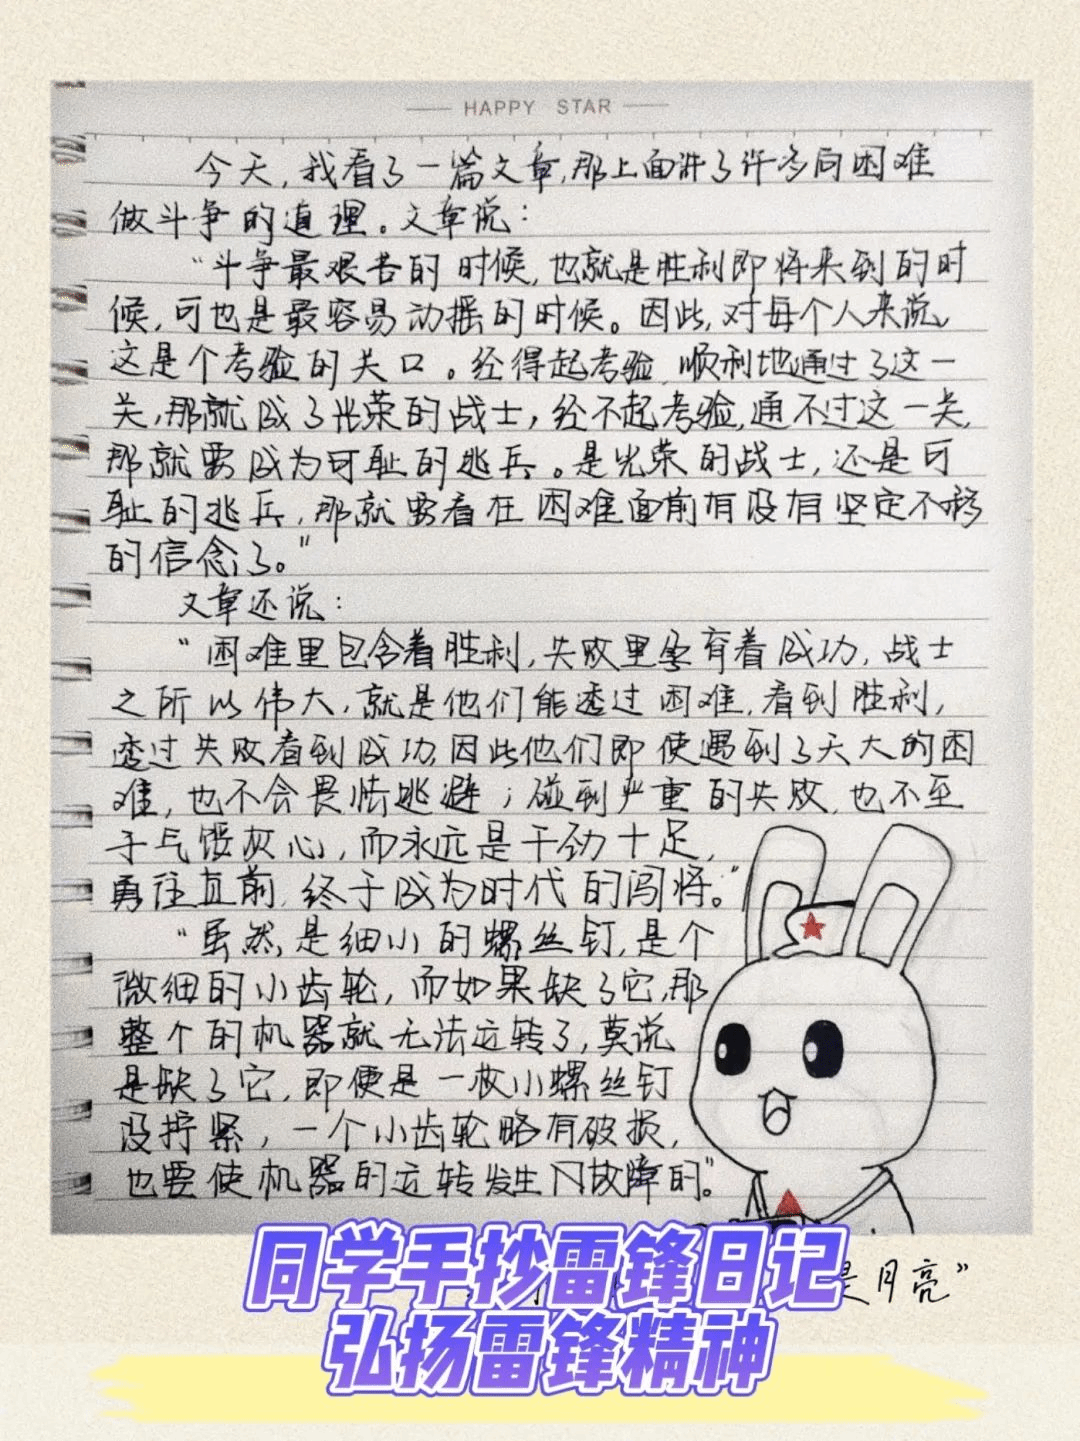 HAPPY STAR
今天,我看了一篇文章,那上面讲了许多向困难
做斗争的道理。文章说:
"斗争最艰苦的时候,也就是胜利即将来到的时
候,可也是最容易动摇的时候。因此,对每个人来说,
这是个考验的关口。经得起考验,顺利地通过了这一
关,那就成了光荣的战士,经不起考验,通不过这一关,
那就要成为可耻的逃兵。是光荣的战士,还是可
耻的逃兵,那就要看在困难面前有没有坚定不移
的信念了。"
文章还说:
"困难里包含着胜利,失败里孕育着成功,战士
之所以伟大,就是他们能透过困难,看到胜利,
透过失败看到成功,因此他们即使遇到了天大的困
难,也不会畏怯逃避;碰到严重的失败,也不至
于气馁灰心,而永远是干劲十足,
勇往直前,终于成为时代的闯将。"
"虽然,是细小的螺丝钉,是个
微细的小齿轮,而如果缺了它,那
整个的机器就无法运转了,莫说
是缺了它,即使是一枚小螺丝钉
没拧紧,一个小齿轮略有破损,
也要使机器的运转发生故障的。"
是月亮"
同学手抄雷锋日记
弘扬雷锋精神